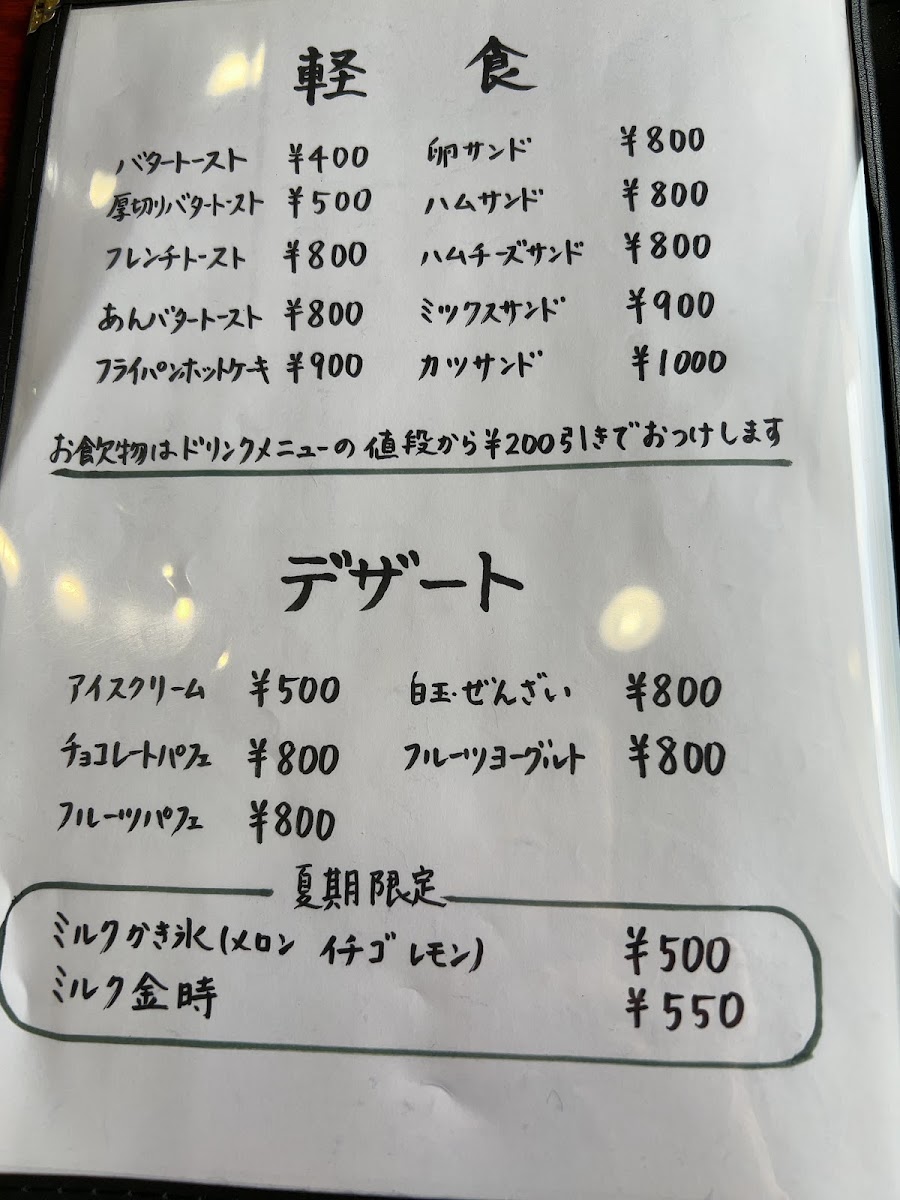 軽食
バタートースト ¥400 卵サンド ¥800
厚切りバタートースト ¥500 ハムサンド ¥800
フレンチトースト ¥800 ハムチーズサンド ¥800
あんバタートースト ¥800 ミックスサンド ¥900
フライパンホットケーキ ¥900 カツサンド ¥1000
お飲物はドリンクメニューの値段から¥200引きでおつけします
デザート
アイスクリーム ¥500 白玉・ぜんざい ¥800
チョコレートパフェ ¥800 フルーツヨーグルト ¥800
フルーツパフェ ¥800
夏期限定
ミルクかき氷(メロン イチゴ レモン) ¥500
ミルク金時 ¥550